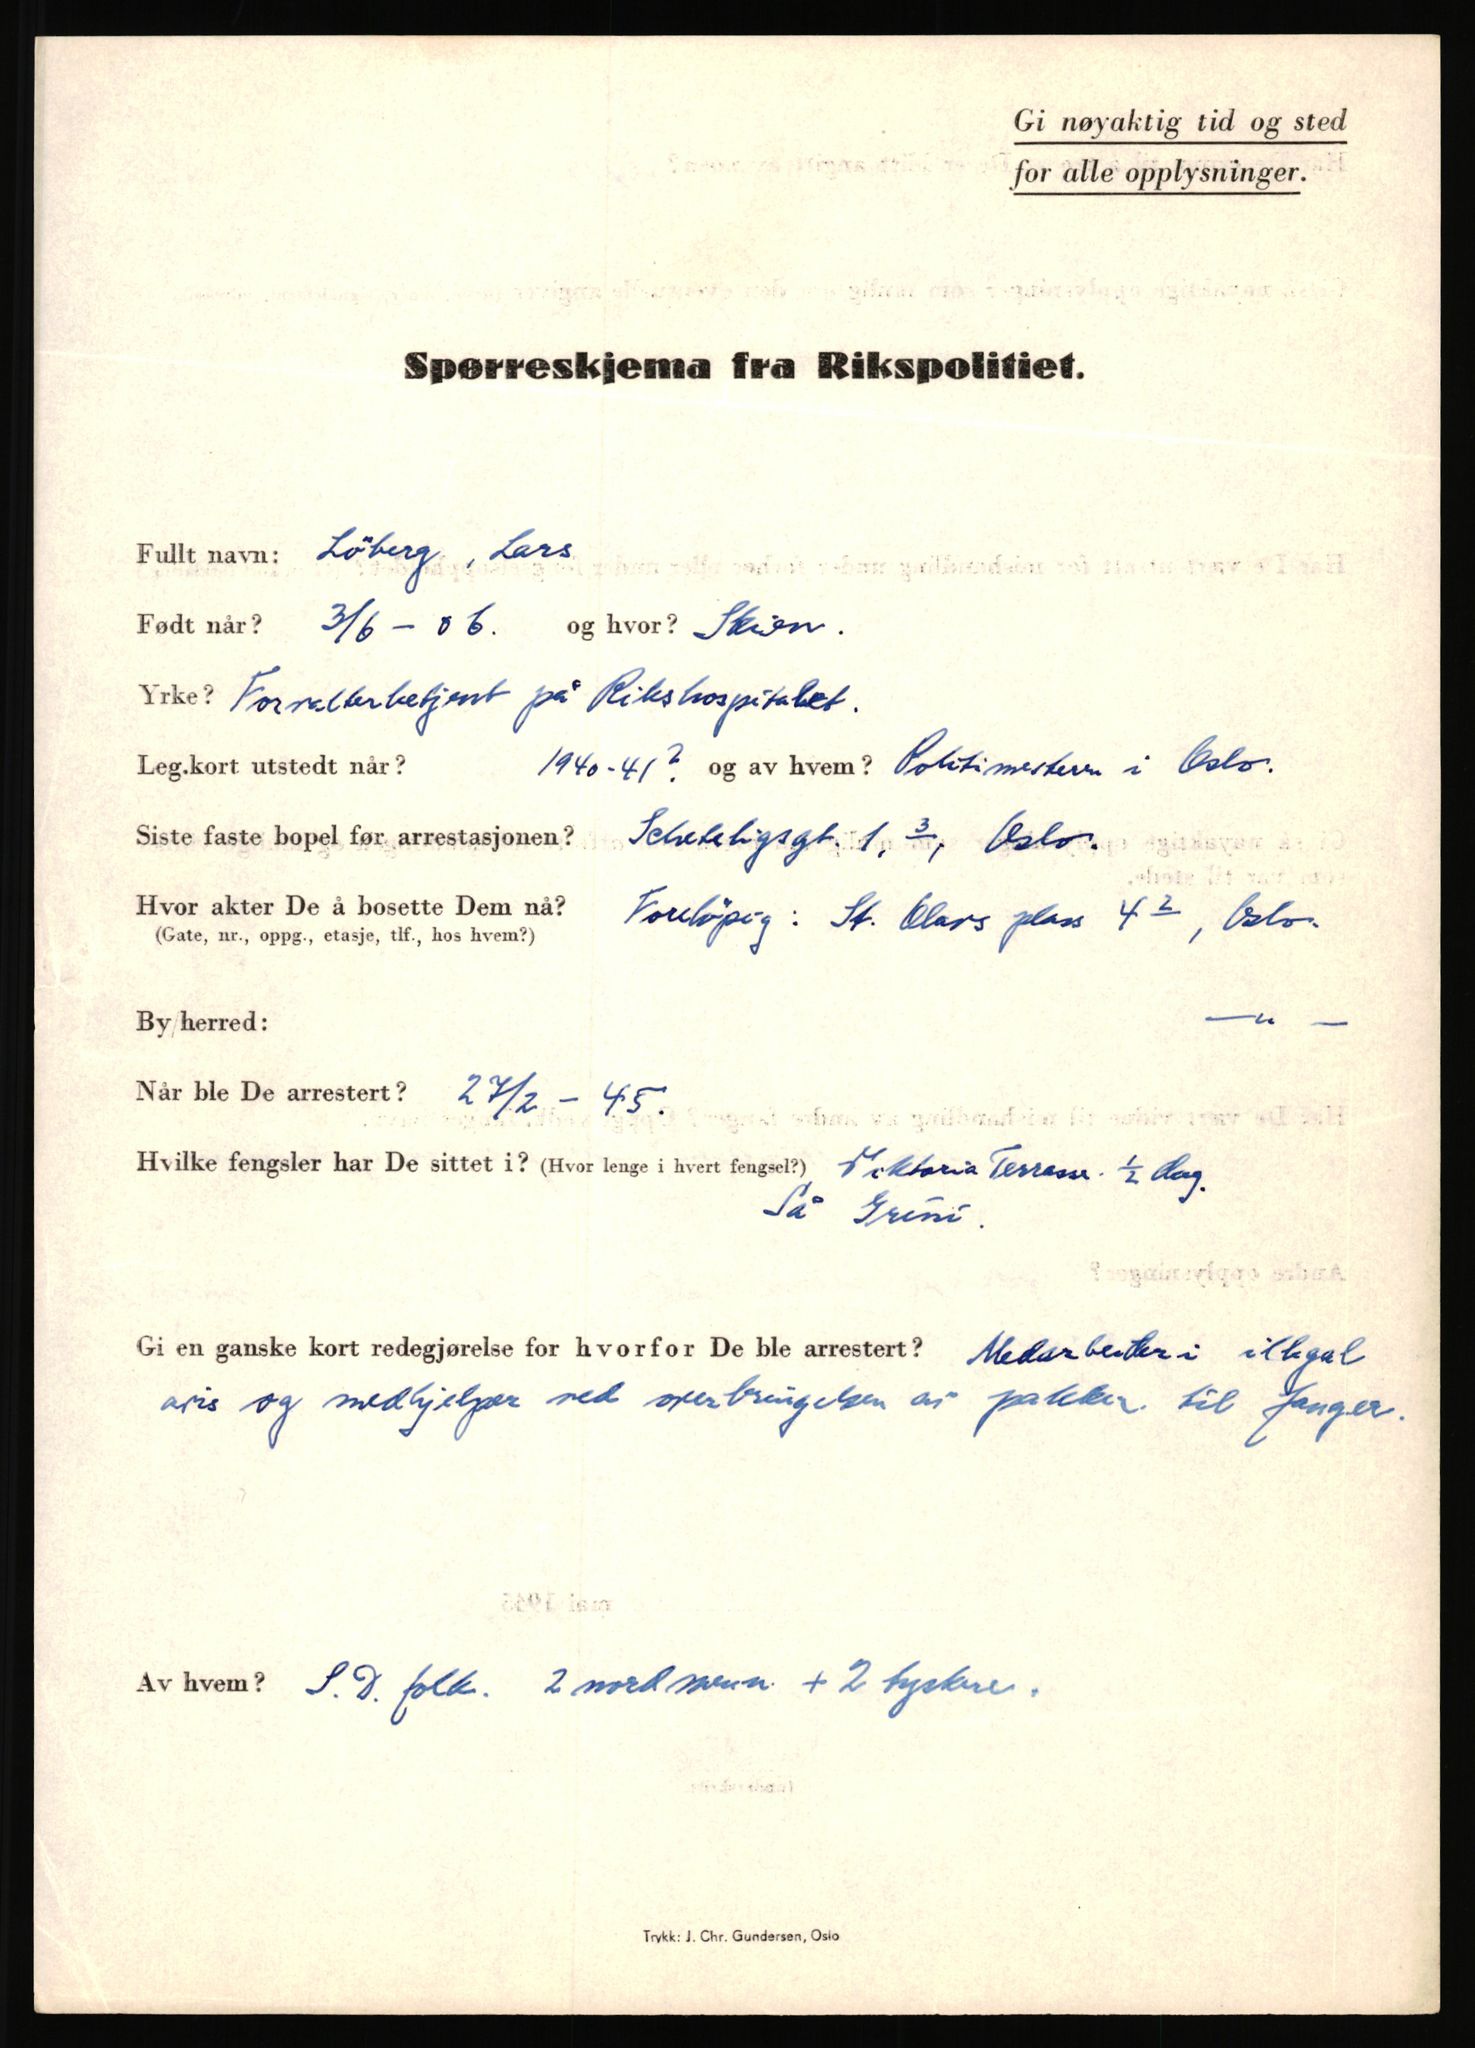 Gi nøyaktig tid og sted
for alle opplysninger.
Spørreskjema fra Rikspolitiet.
Fullt navn: Löberg, Lars
Født når? 3/6 – 06. og hvor? Skien.
Yrke? Forvalterbetjent på Rikshospitalet.
Leg.kort utstedt når? 1940-41? og av hvem? Politimesteren i Oslo.
Siste faste bopel før arrestasjonen? Scheteligsgt. 1, 3, Oslo.
Hvor akter De å bosette Dem nå? Forelöpig: St. Olavs plass 4 2, Oslo.
(Gate, nr., oppg., etasje, tlf., hos hvem?)
By/herred: —"—
Når ble De arrestert? 27/2 – 45.
Hvilke fengsler har De sittet i? (Hvor lenge i hvert fengsel?) Viktoria Terrasse. ½ dag.
Så Grini.
Gi en ganske kort redegjørelse for hvorfor De ble arrestert? Medarbeider i illegal
avis og medhjelper ved overbringelsen av pakker til fanger.
Av hvem? S.D. folk. 2 nordmenn + 2 tyskere.
Trykk: J. Chr. Gundersen, Oslo